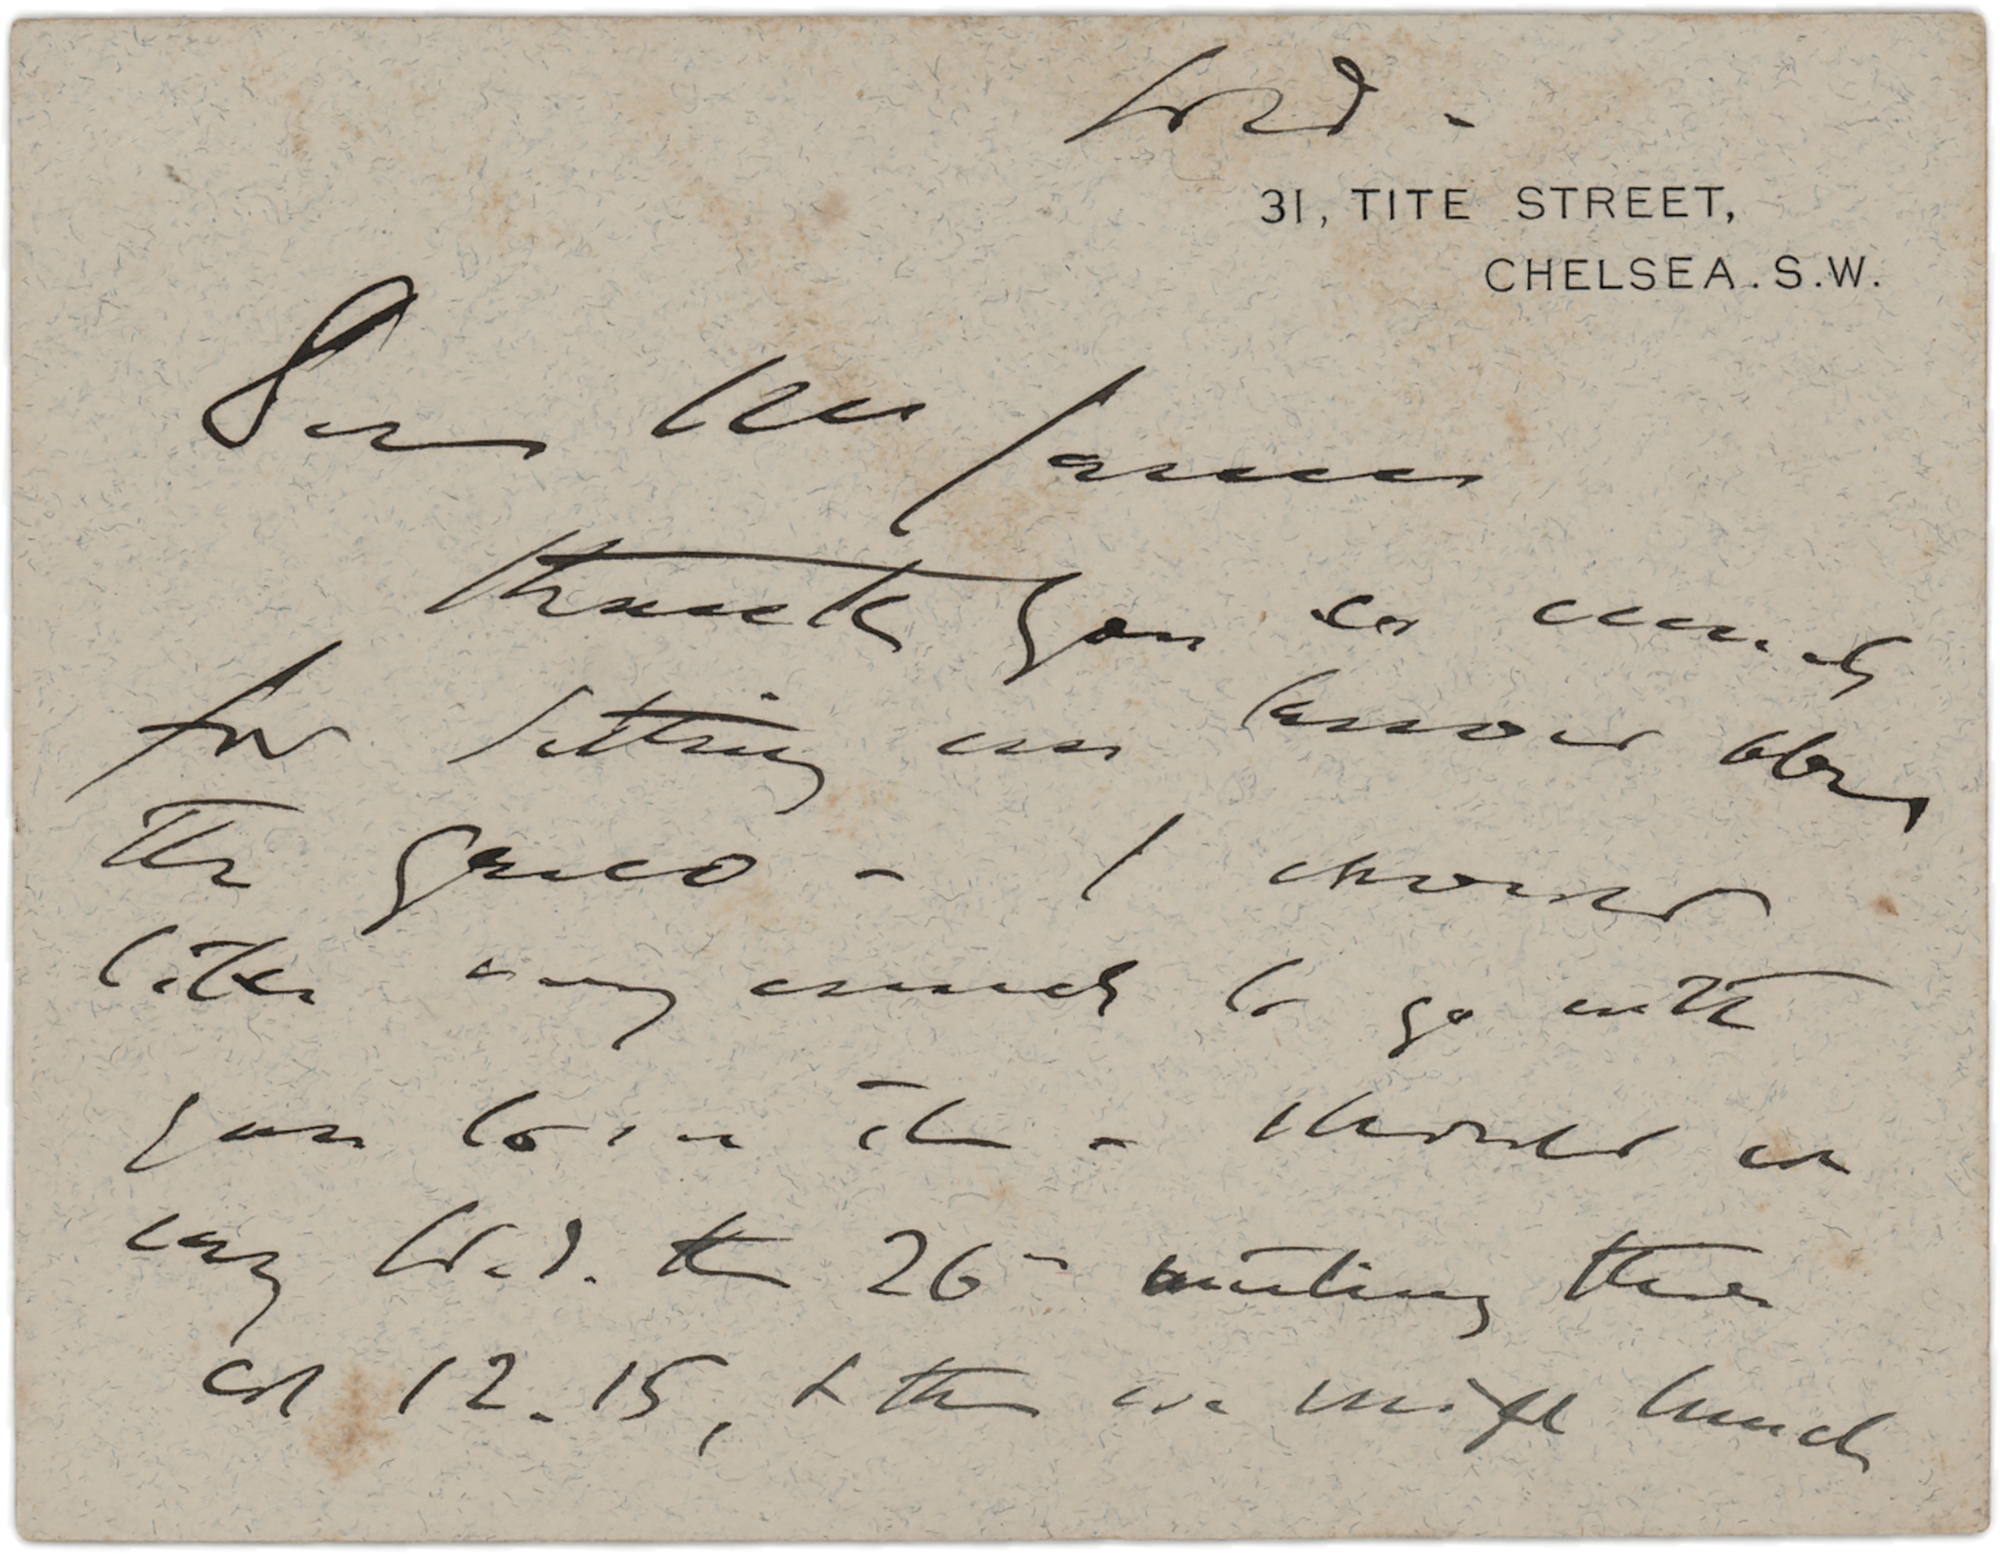 Wed -
31, TITE STREET,
CHELSEA. S.W.
Dear Mrs James
Thank you so much
for letting me know about
the Greco - I should
like very much to go with
you to see it - Should we
say Wed. the 26 meeting there
at 12.15, & then we might lunch